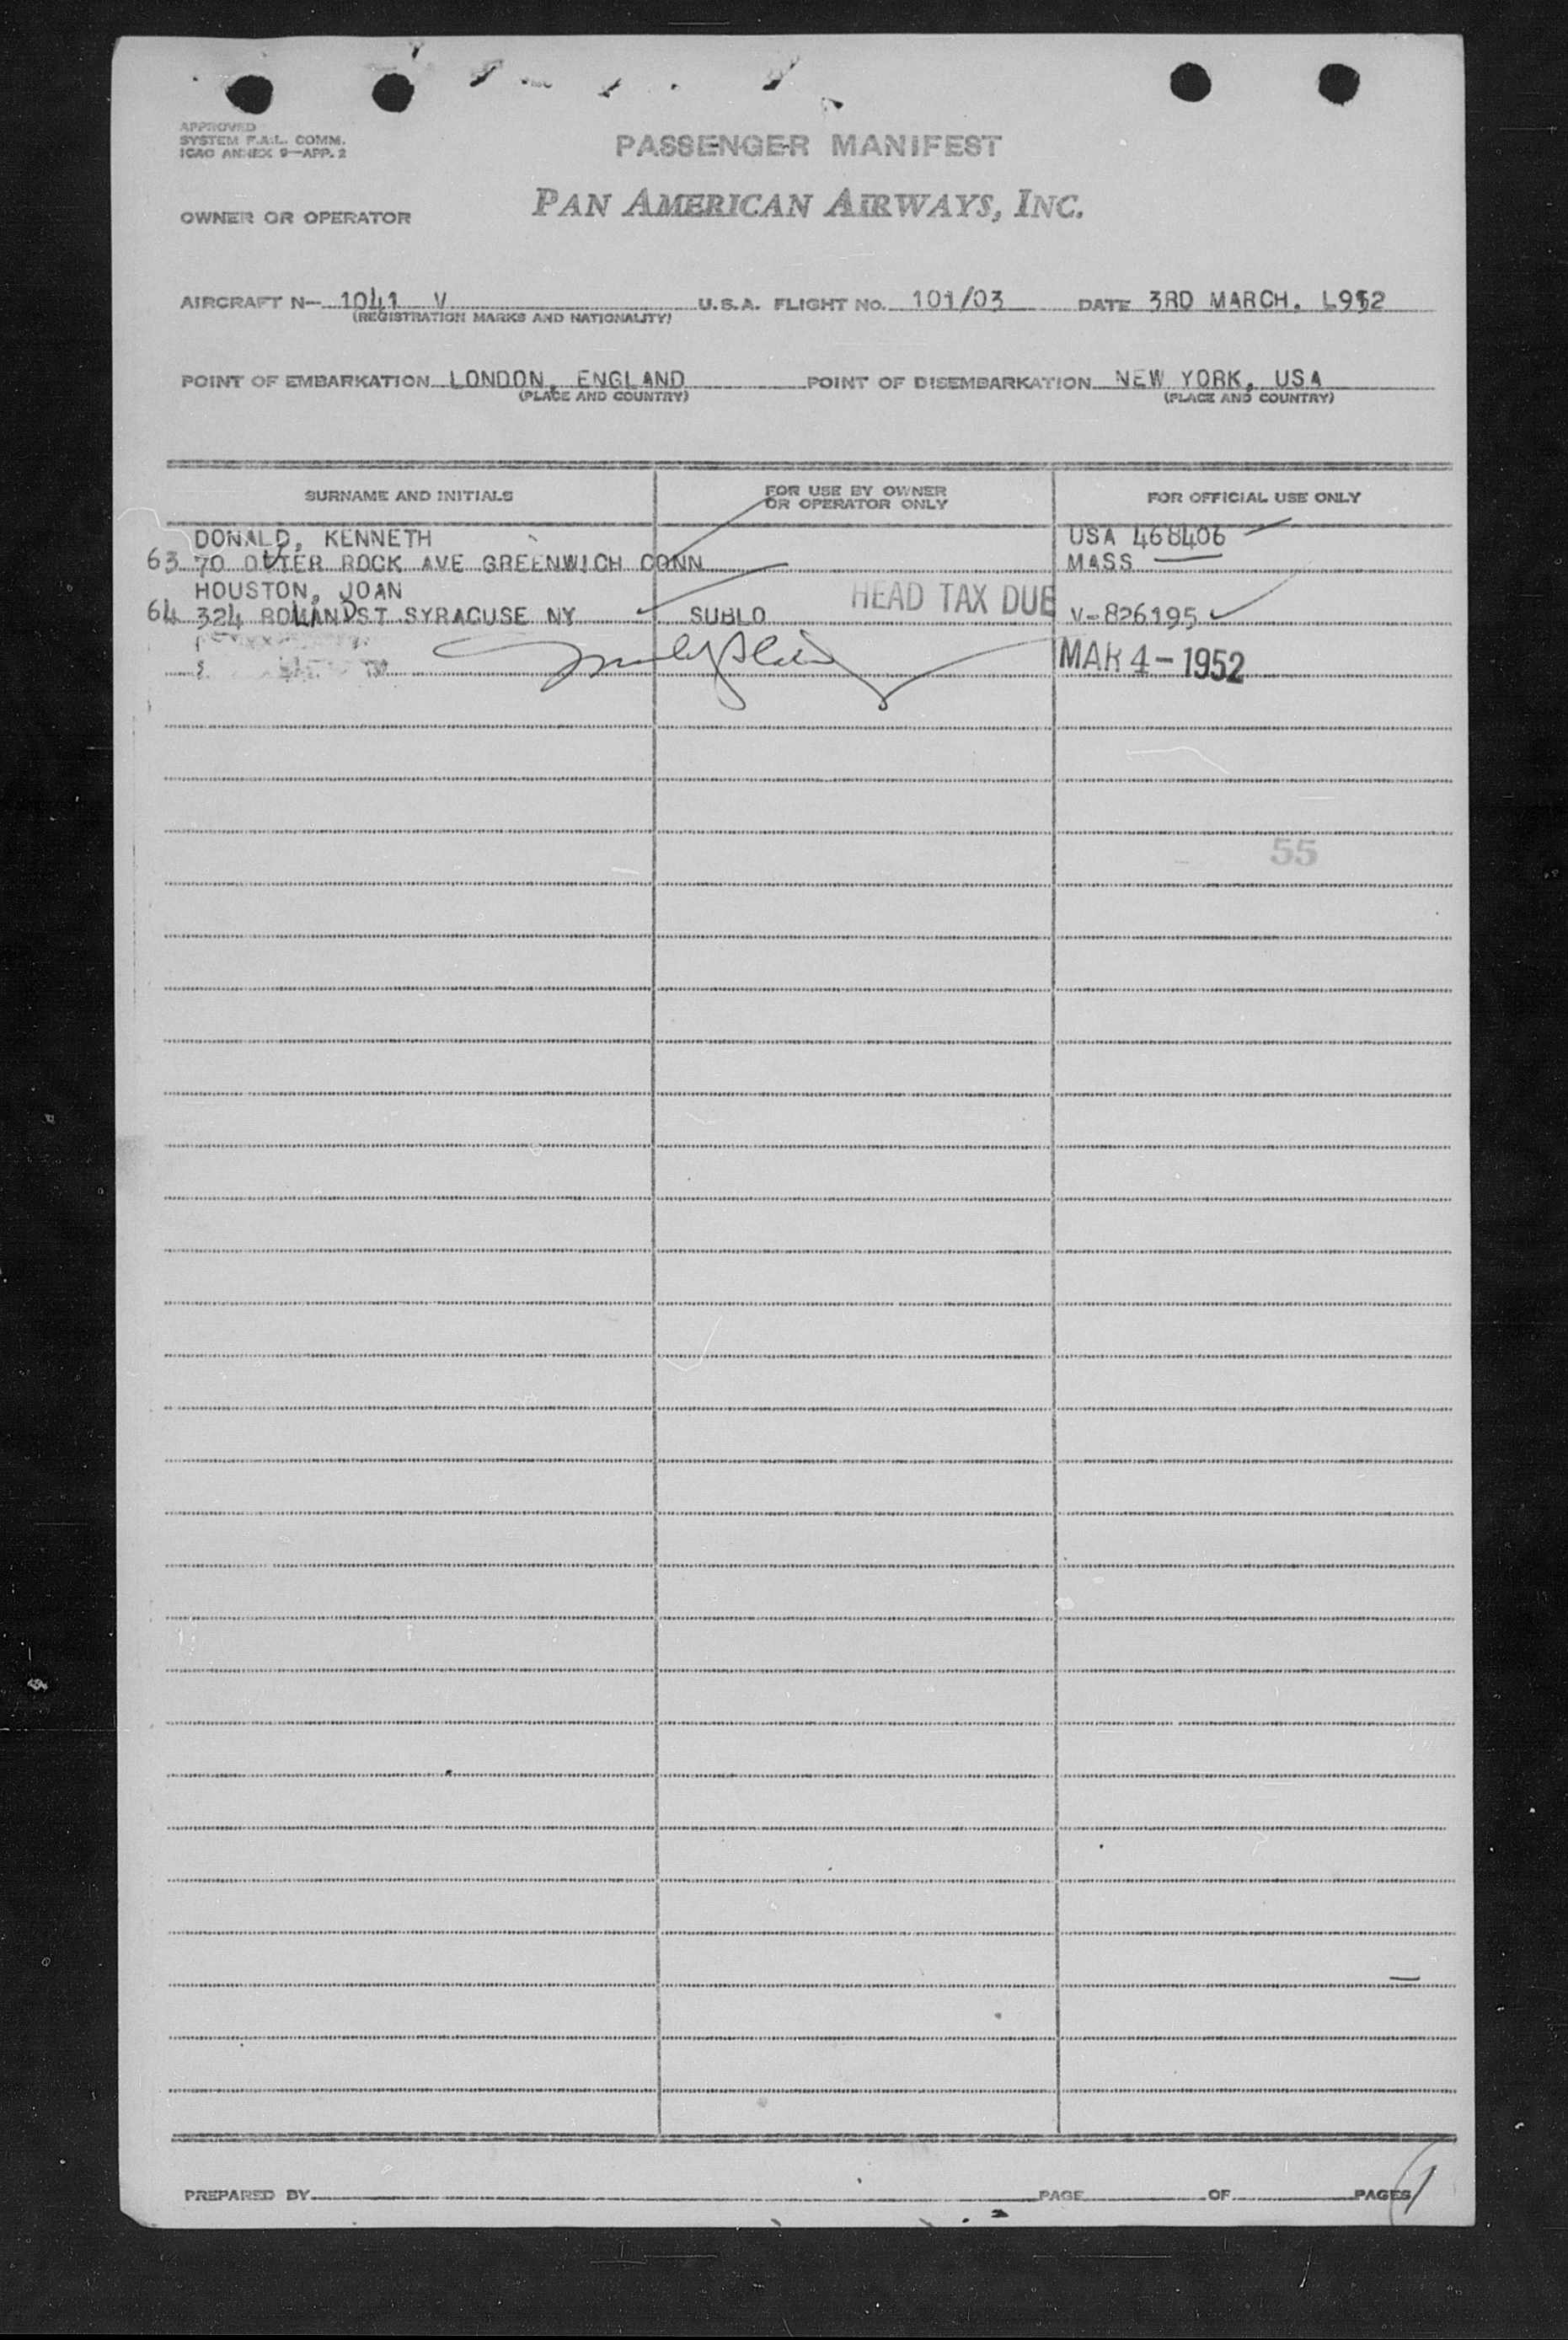 APPROVED
SYSTEM F.A.L. COMM.
ICAO ANNEX 9—APP. 2
PASSENGER MANIFEST
OWNER OR OPERATOR
PAN AMERICAN AIRWAYS, INC.
AIRCRAFT N— 1041 V U.S.A. FLIGHT NO. 101/03 DATE 3RD MARCH, L952
(REGISTRATION MARKS AND NATIONALITY)
POINT OF EMBARKATION LONDON, ENGLAND POINT OF DISEMBARKATION NEW YORK, USA
(PLACE AND COUNTRY) (PLACE AND COUNTRY)
SURNAME AND INITIALS FOR USE BY OWNER OR OPERATOR ONLY FOR OFFICIAL USE ONLY
DONALD, KENNETH USA 468406
63 70 OTTER ROCK AVE GREENWICH CONN MASS
HOUSTON, JOAN HEAD TAX DUE
64 324 ROLAND ST SYRACUSE NY SUBLO V-826195
MAR 4-1952
55
PREPARED BY PAGE OF PAGES